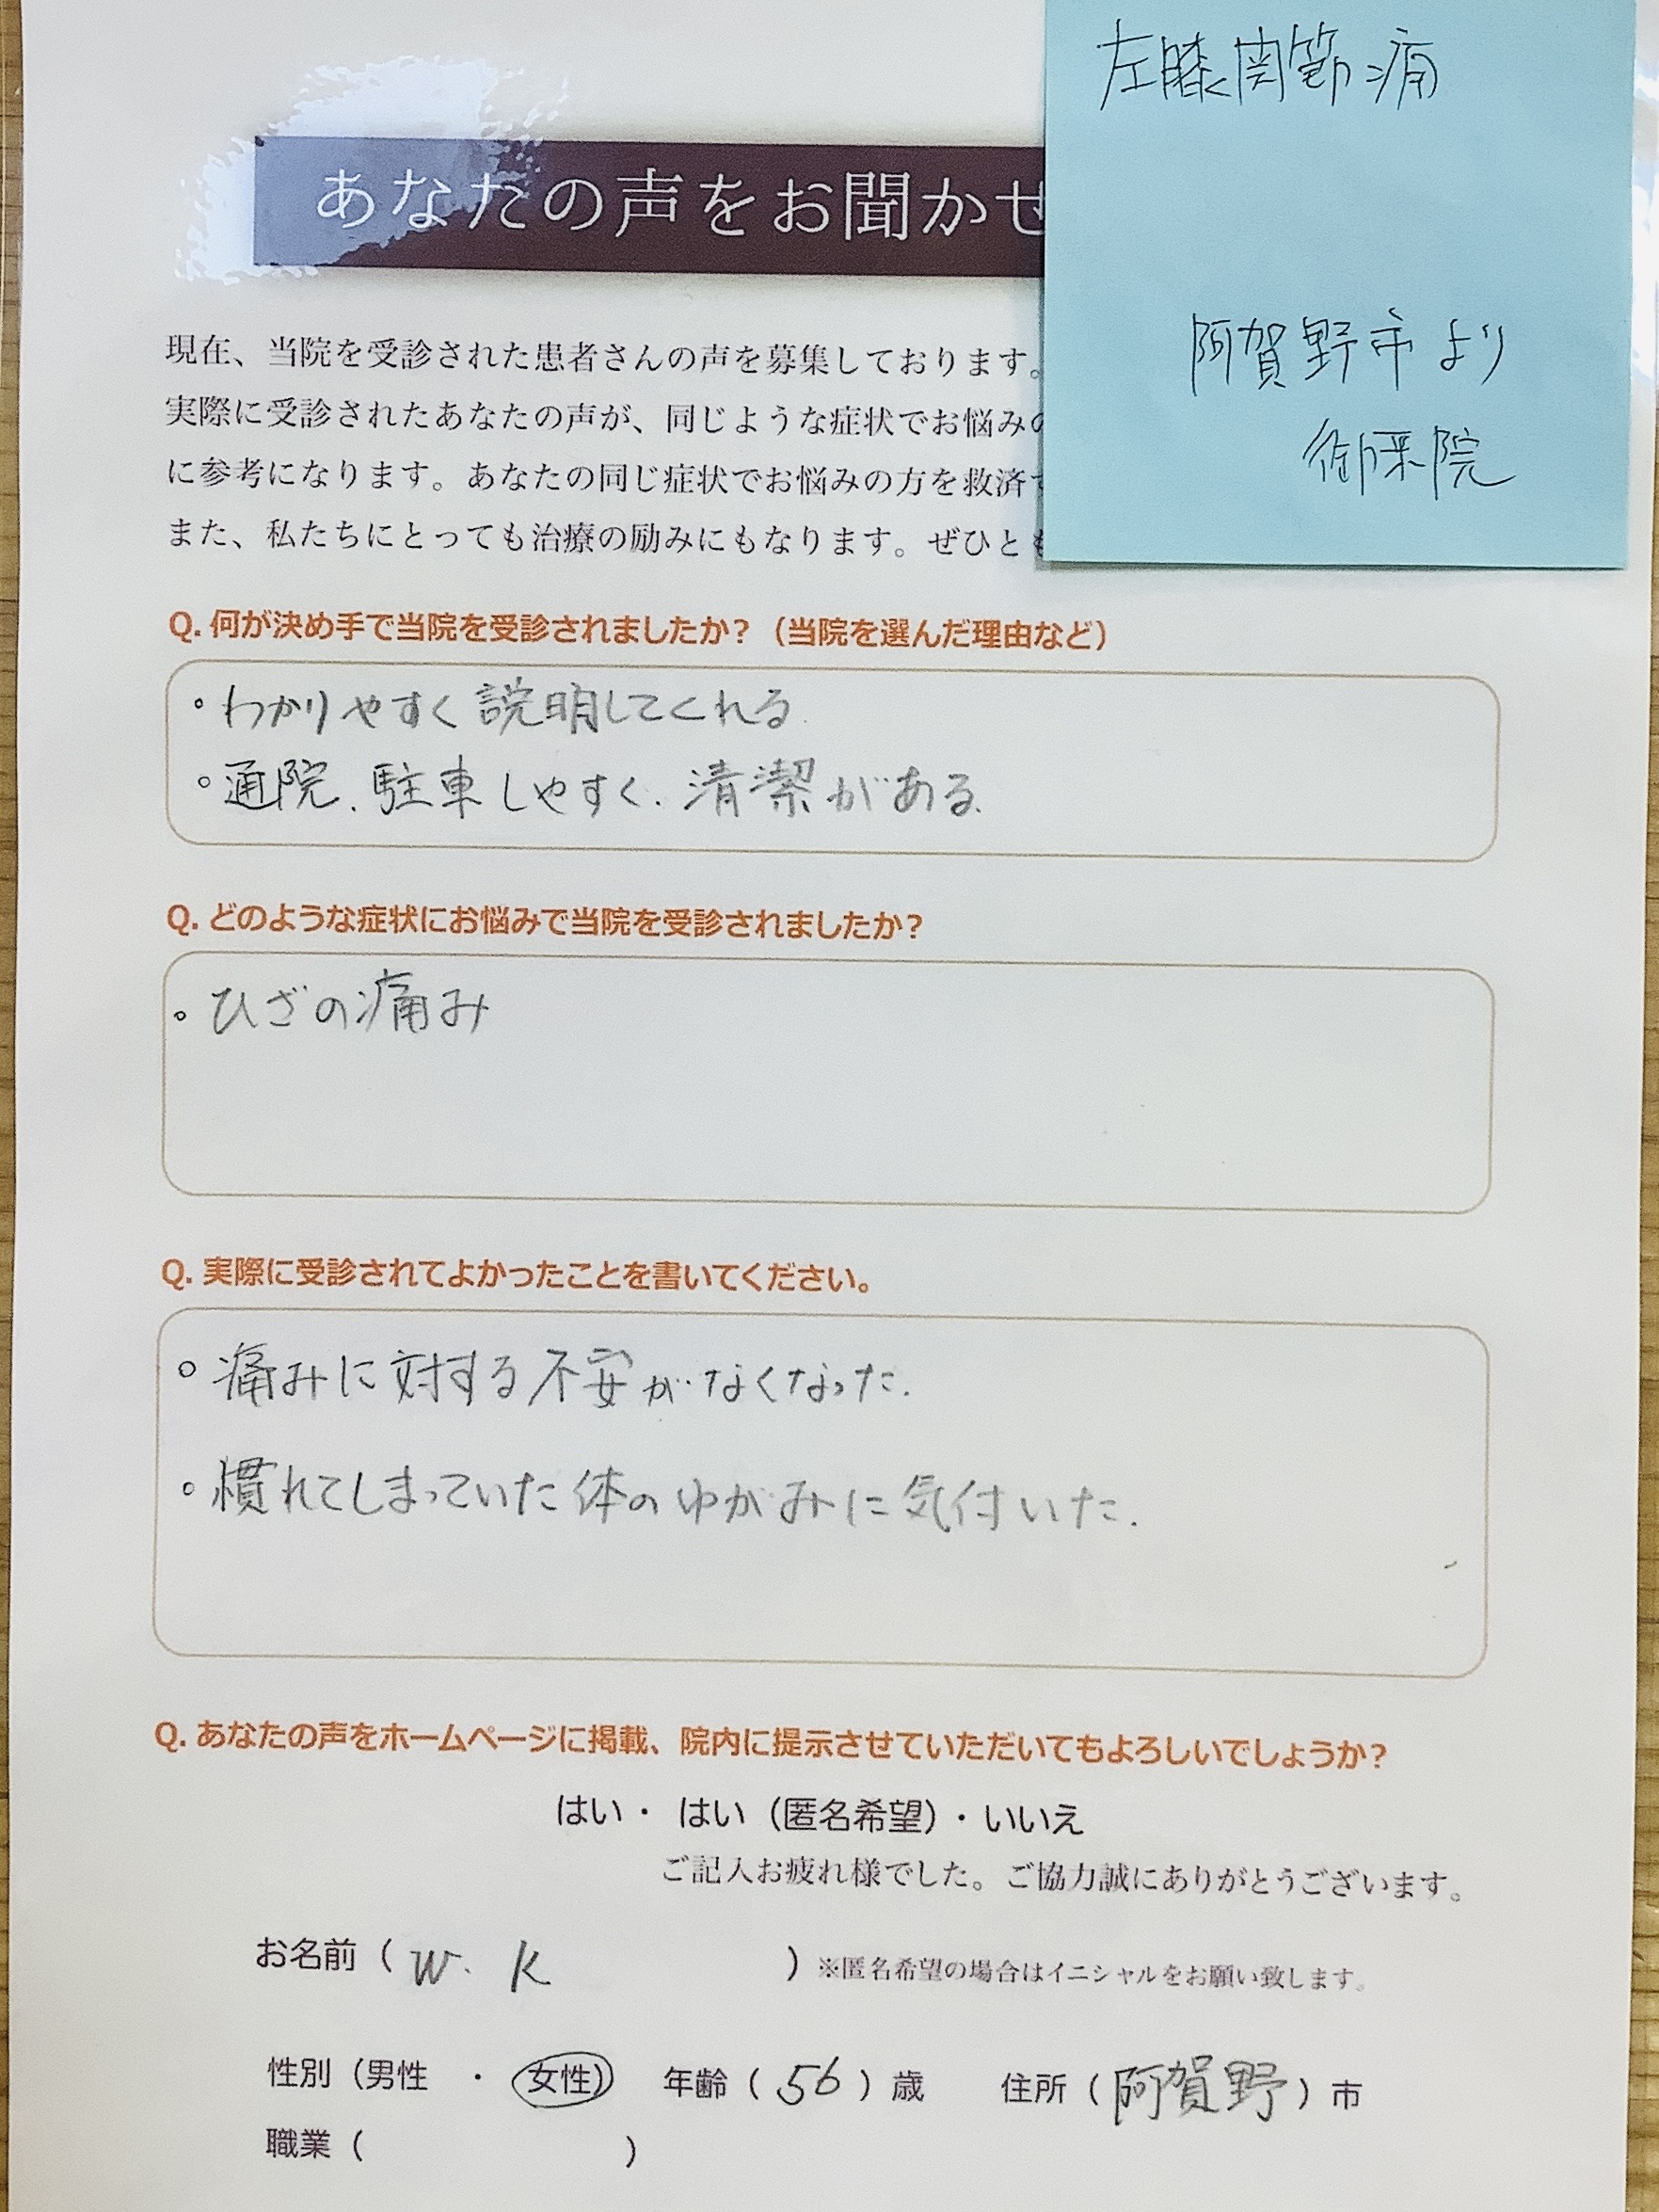 左膝関節痛
阿賀野市より
御来院
あなたの声をお聞かせ
現在、当院を受診された患者さんの声を募集しております。
実際に受診されたあなたの声が、同じような症状でお悩みの
に参考になります。あなたの同じ症状でお悩みの方を救済
また、私たちにとっても治療の励みにもなります。ぜひとも
Q. 何が決め手で当院を受診されましたか？（当院を選んだ理由など）
。わかりやすく説明してくれる.
。通院、駐車しやすく、清潔がある.
Q. どのような症状にお悩みで当院を受診されましたか？
。ひざの痛み
Q. 実際に受診されてよかったことを書いてください。
。痛みに対する不安がなくなった.
。慣れてしまっていた体のゆがみに気付いた.
Q. あなたの声をホームページに掲載、院内に提示させていただいてもよろしいでしょうか？
はい・ はい（匿名希望）・いいえ
ご記入お疲れ様でした。ご協力誠にありがとうございます。
お名前（ W. K ）※匿名希望の場合はイニシャルをお願い致します。
性別（男性 ・ 女性） 年齢（ 56 ）歳 住所（ 阿賀野 ）市
職業（ ）